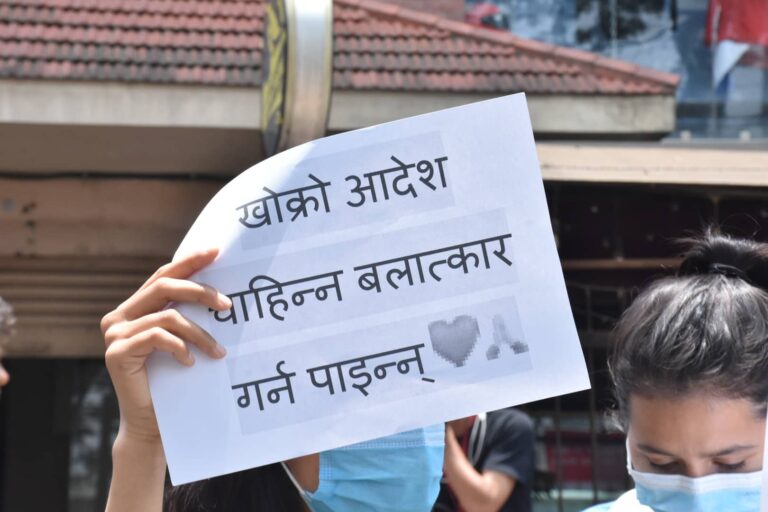 खोक्रो आदेश
चाहिन्न बलात्कार
गर्न पाइन्न्